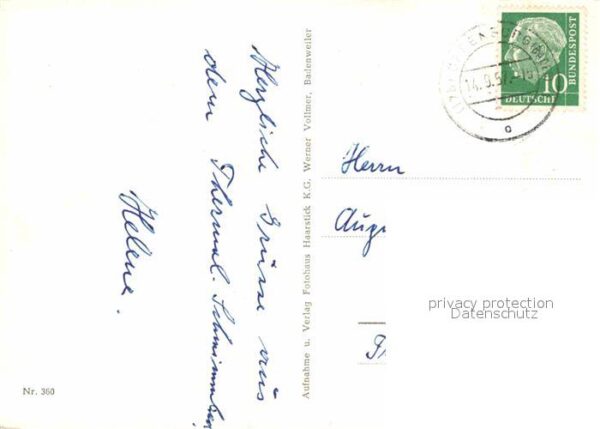 Herzliche Grüsse aus
dem Thermal-Schwimmbad
Helene.
Nr. 360
Aufnahme u. Verlag Fotohaus Haarstick K.G. Werner Vollmer, Badenweiler
14.9.57
10
DEUTSCHE
BUNDESPOST
Herrn
Aug
privacy protection
Datenschutz